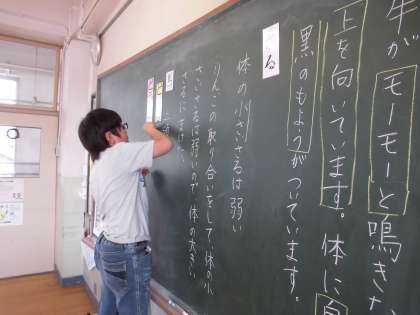 牛がモーモーと鳴きな
上を向いています。体に白
黒のもようがついています。
る
体の小さいさるは弱い
りんごの取り合いをして、体の小
さいさるは弱いので、体の大きい
さるに